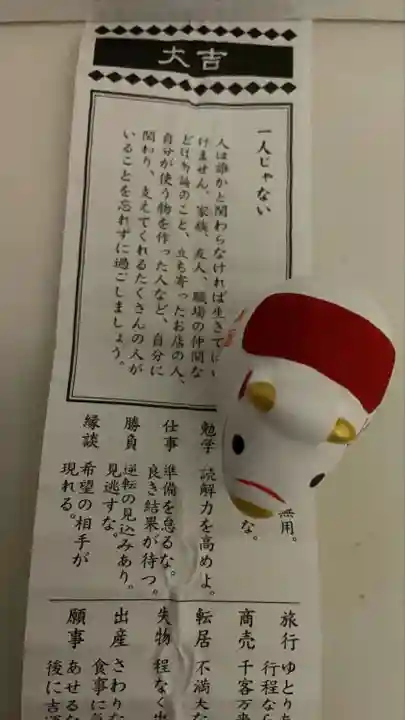 大吉
一人じゃない
人は誰かと関わらなければ生きてい
けません。家族、友人、職場の仲間な
どは勿論のこと、立ち寄ったお店の人、
自分が使う物を作った人など、自分に
関わり、支えてくれるたくさんの人が
いることを忘れずに過ごしましょう。
無用。
な。
勉学 読解力を高めよ。
仕事 準備を怠るな。
良き結果が待つ。
勝負 逆転の見込みあり。
見逃すな。
縁談 希望の相手が
現れる。
旅行 ゆとり
行程なら
商売 千客万来
転居 不満
失物 程なく出
出産 さわりな
食事に
願事 あせるな
後に吉